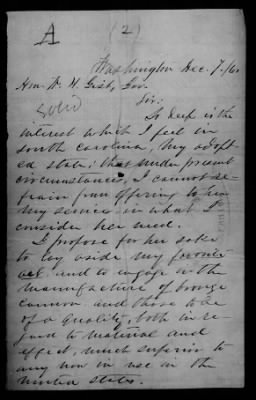 A
(2)
Washington Dec. 7./60
Hon. W. H. Gist, Gov.
Sir:
So deep is the
interest which I feel in
south carolina, my adopt-
ed state; that under present
circumstances, I cannot re-
frain from offering to her
my service in what I
consider her need.
I propose for her sake
to lay aside my favorite
and to engage in the
manufacture of bronze
cannon and those too
of a quality, both in re-
gard to material and
effect, much superior to
any now in use in the
united states.